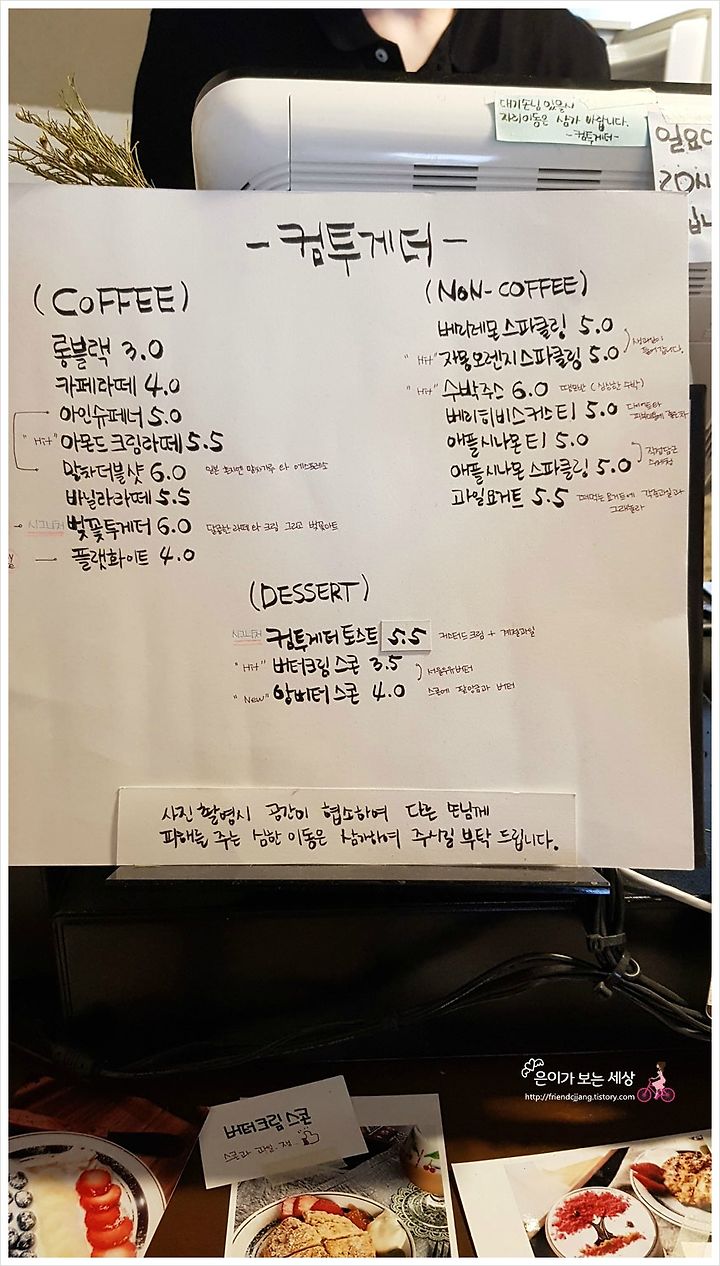 대기손님 있을시
자리이동은 삼가 바랍니다.
-컴투게더-
일요
20시
- 컴투게더 -
(COFFEE)
롱블랙 3.0
카페라떼 4.0
아인슈페너 5.0
"Hit" 아몬드크림라떼 5.5
말차더블샷 6.0
바닐라라떼 5.5
시그니처 벚꽃투게더 6.0 달콤한 라떼와 크림 그리고 벚꽃아트
플랫화이트 4.0
(NON-COFFEE)
베리레몬스파클링 5.0
"Hit" 자몽오렌지스파클링 5.0
"Hit" 수박주스 6.0
베리히비스커스티 5.0
애플시나몬티 5.0
애플시나몬스파클링 5.0
과일요거트 5.5 떠먹는 요거트에 각종과일과
그래놀라
(DESSERT)
시그니처 컴투게더토스트 5.5 커스터드크림 + 계절과일
"Hit" 버터크림스콘 3.5 서울우유버터
"New" 앙버터스콘 4.0 스콘에 팥앙금과 버터
사진촬영시 공간이 협소하여 다른 손님께
피해를 주는 심한 이동은 삼가하여 주시길 부탁 드립니다.
은이가 보는 세상
http://friendcjjang.tistory.com
버터크림스콘